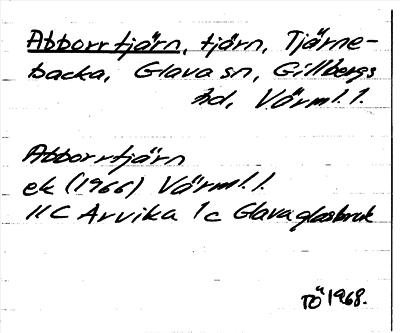 Abborrtjärn, tjärn, Tjärne-
backa, Glava sn, Gillbergs
hd, Värml. l.
Abborrtjärn
ek (1966) Värml. l.
11C Arvika 1c Glava glasbruk
TÖ 1968.